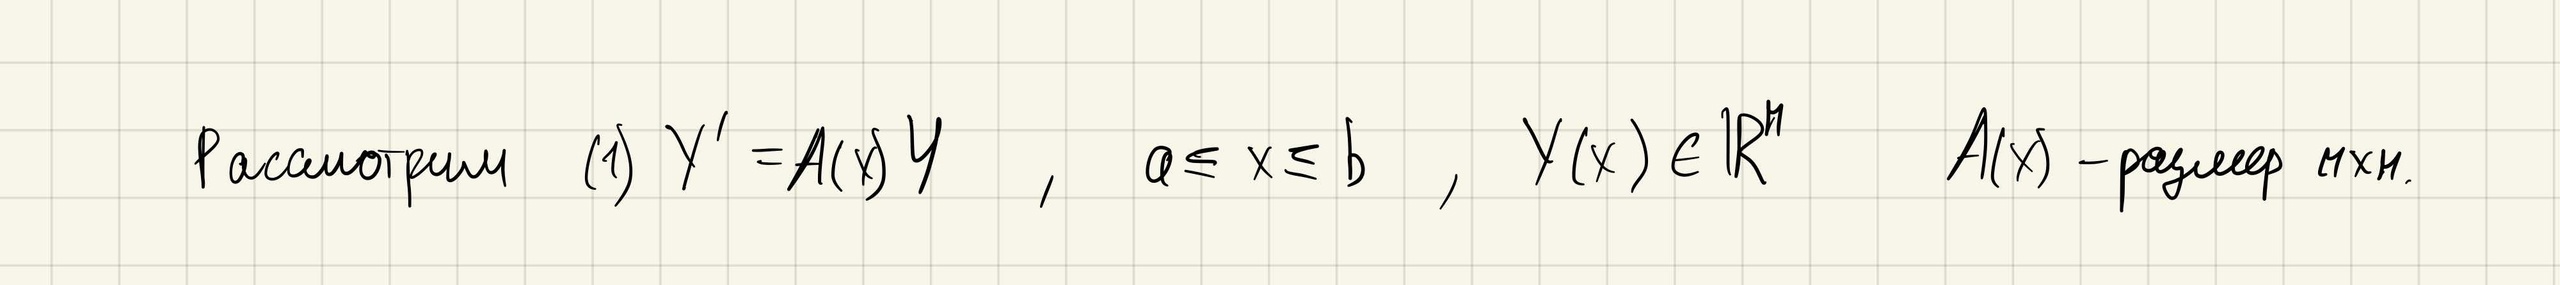 Рассмотрим (1) Y' = A(x)Y , a ≤ x ≤ b , Y(x) ∈ ℝⁿ A(x) – размер n×n.